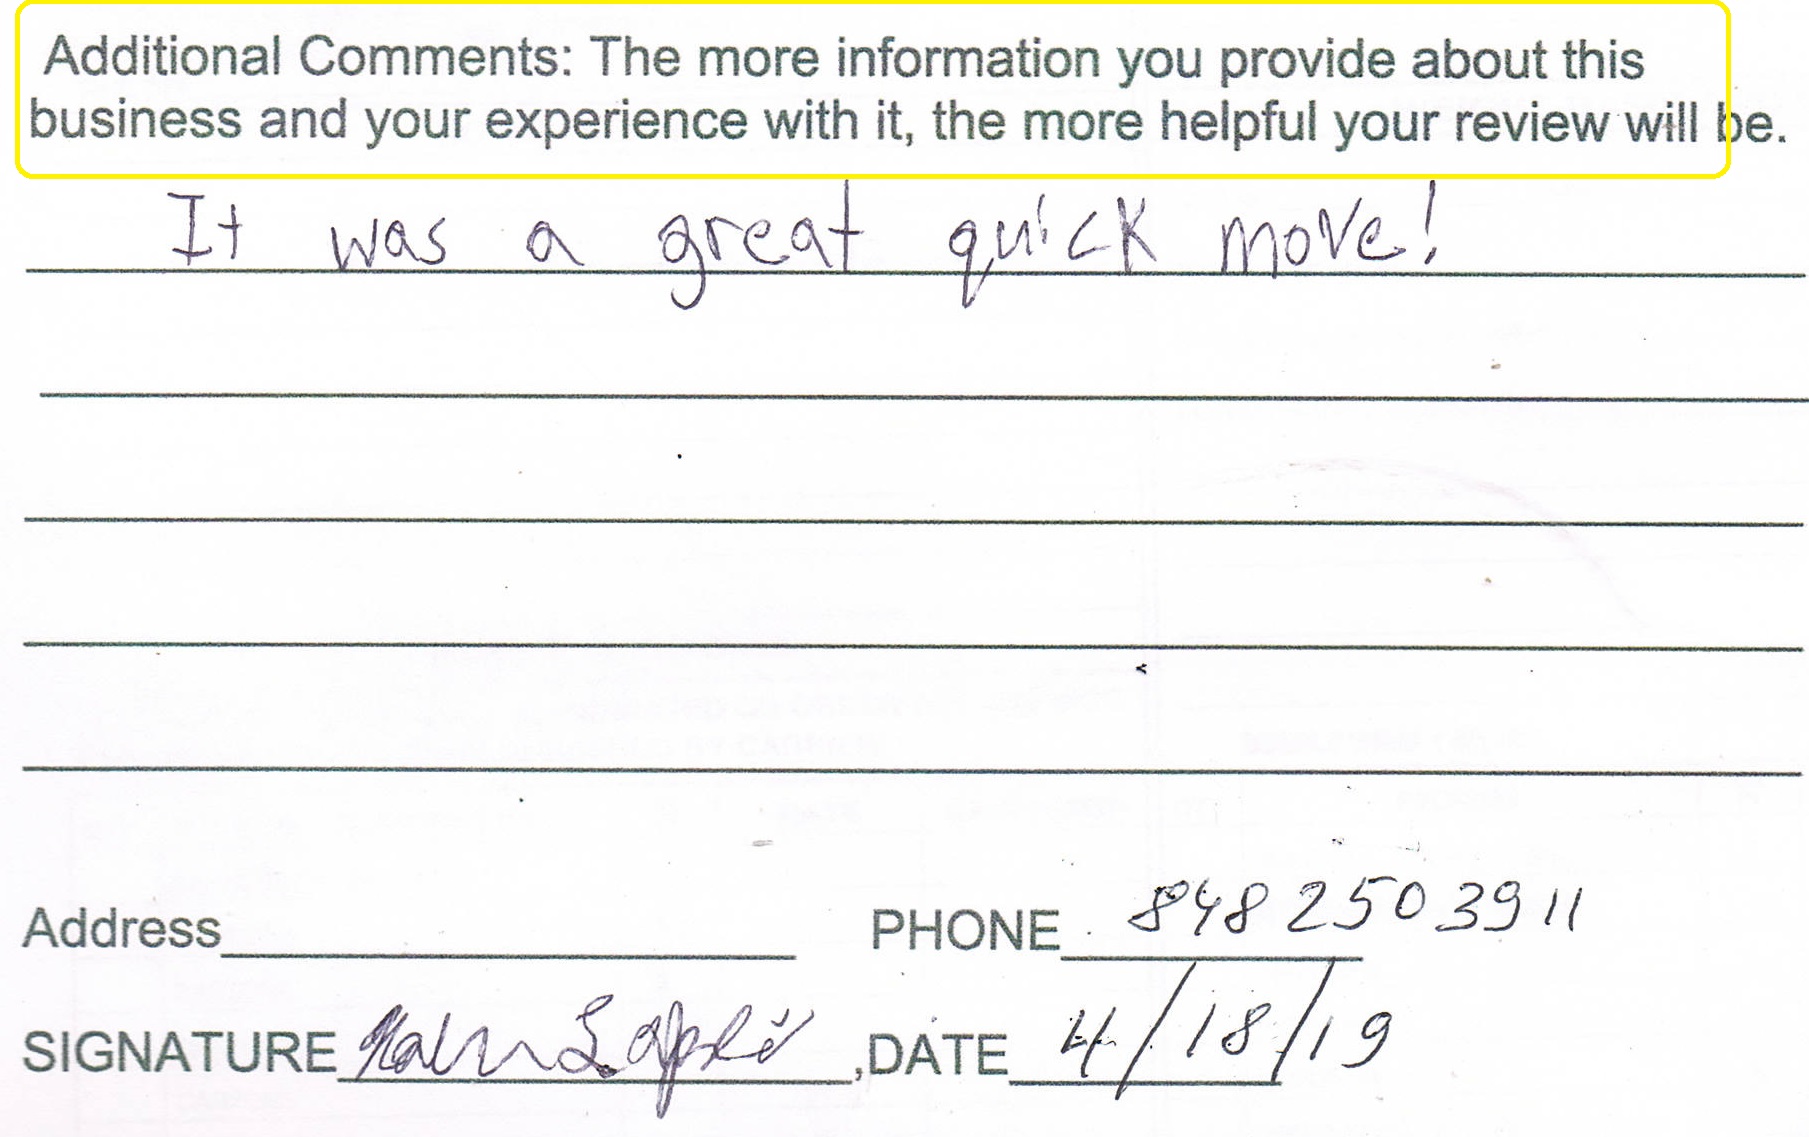 Additional Comments: The more information you provide about this
business and your experience with it, the more helpful your review will be.
It was a great quick move!
Address PHONE 848 250 3911
SIGNATURE ,DATE 4/18/19